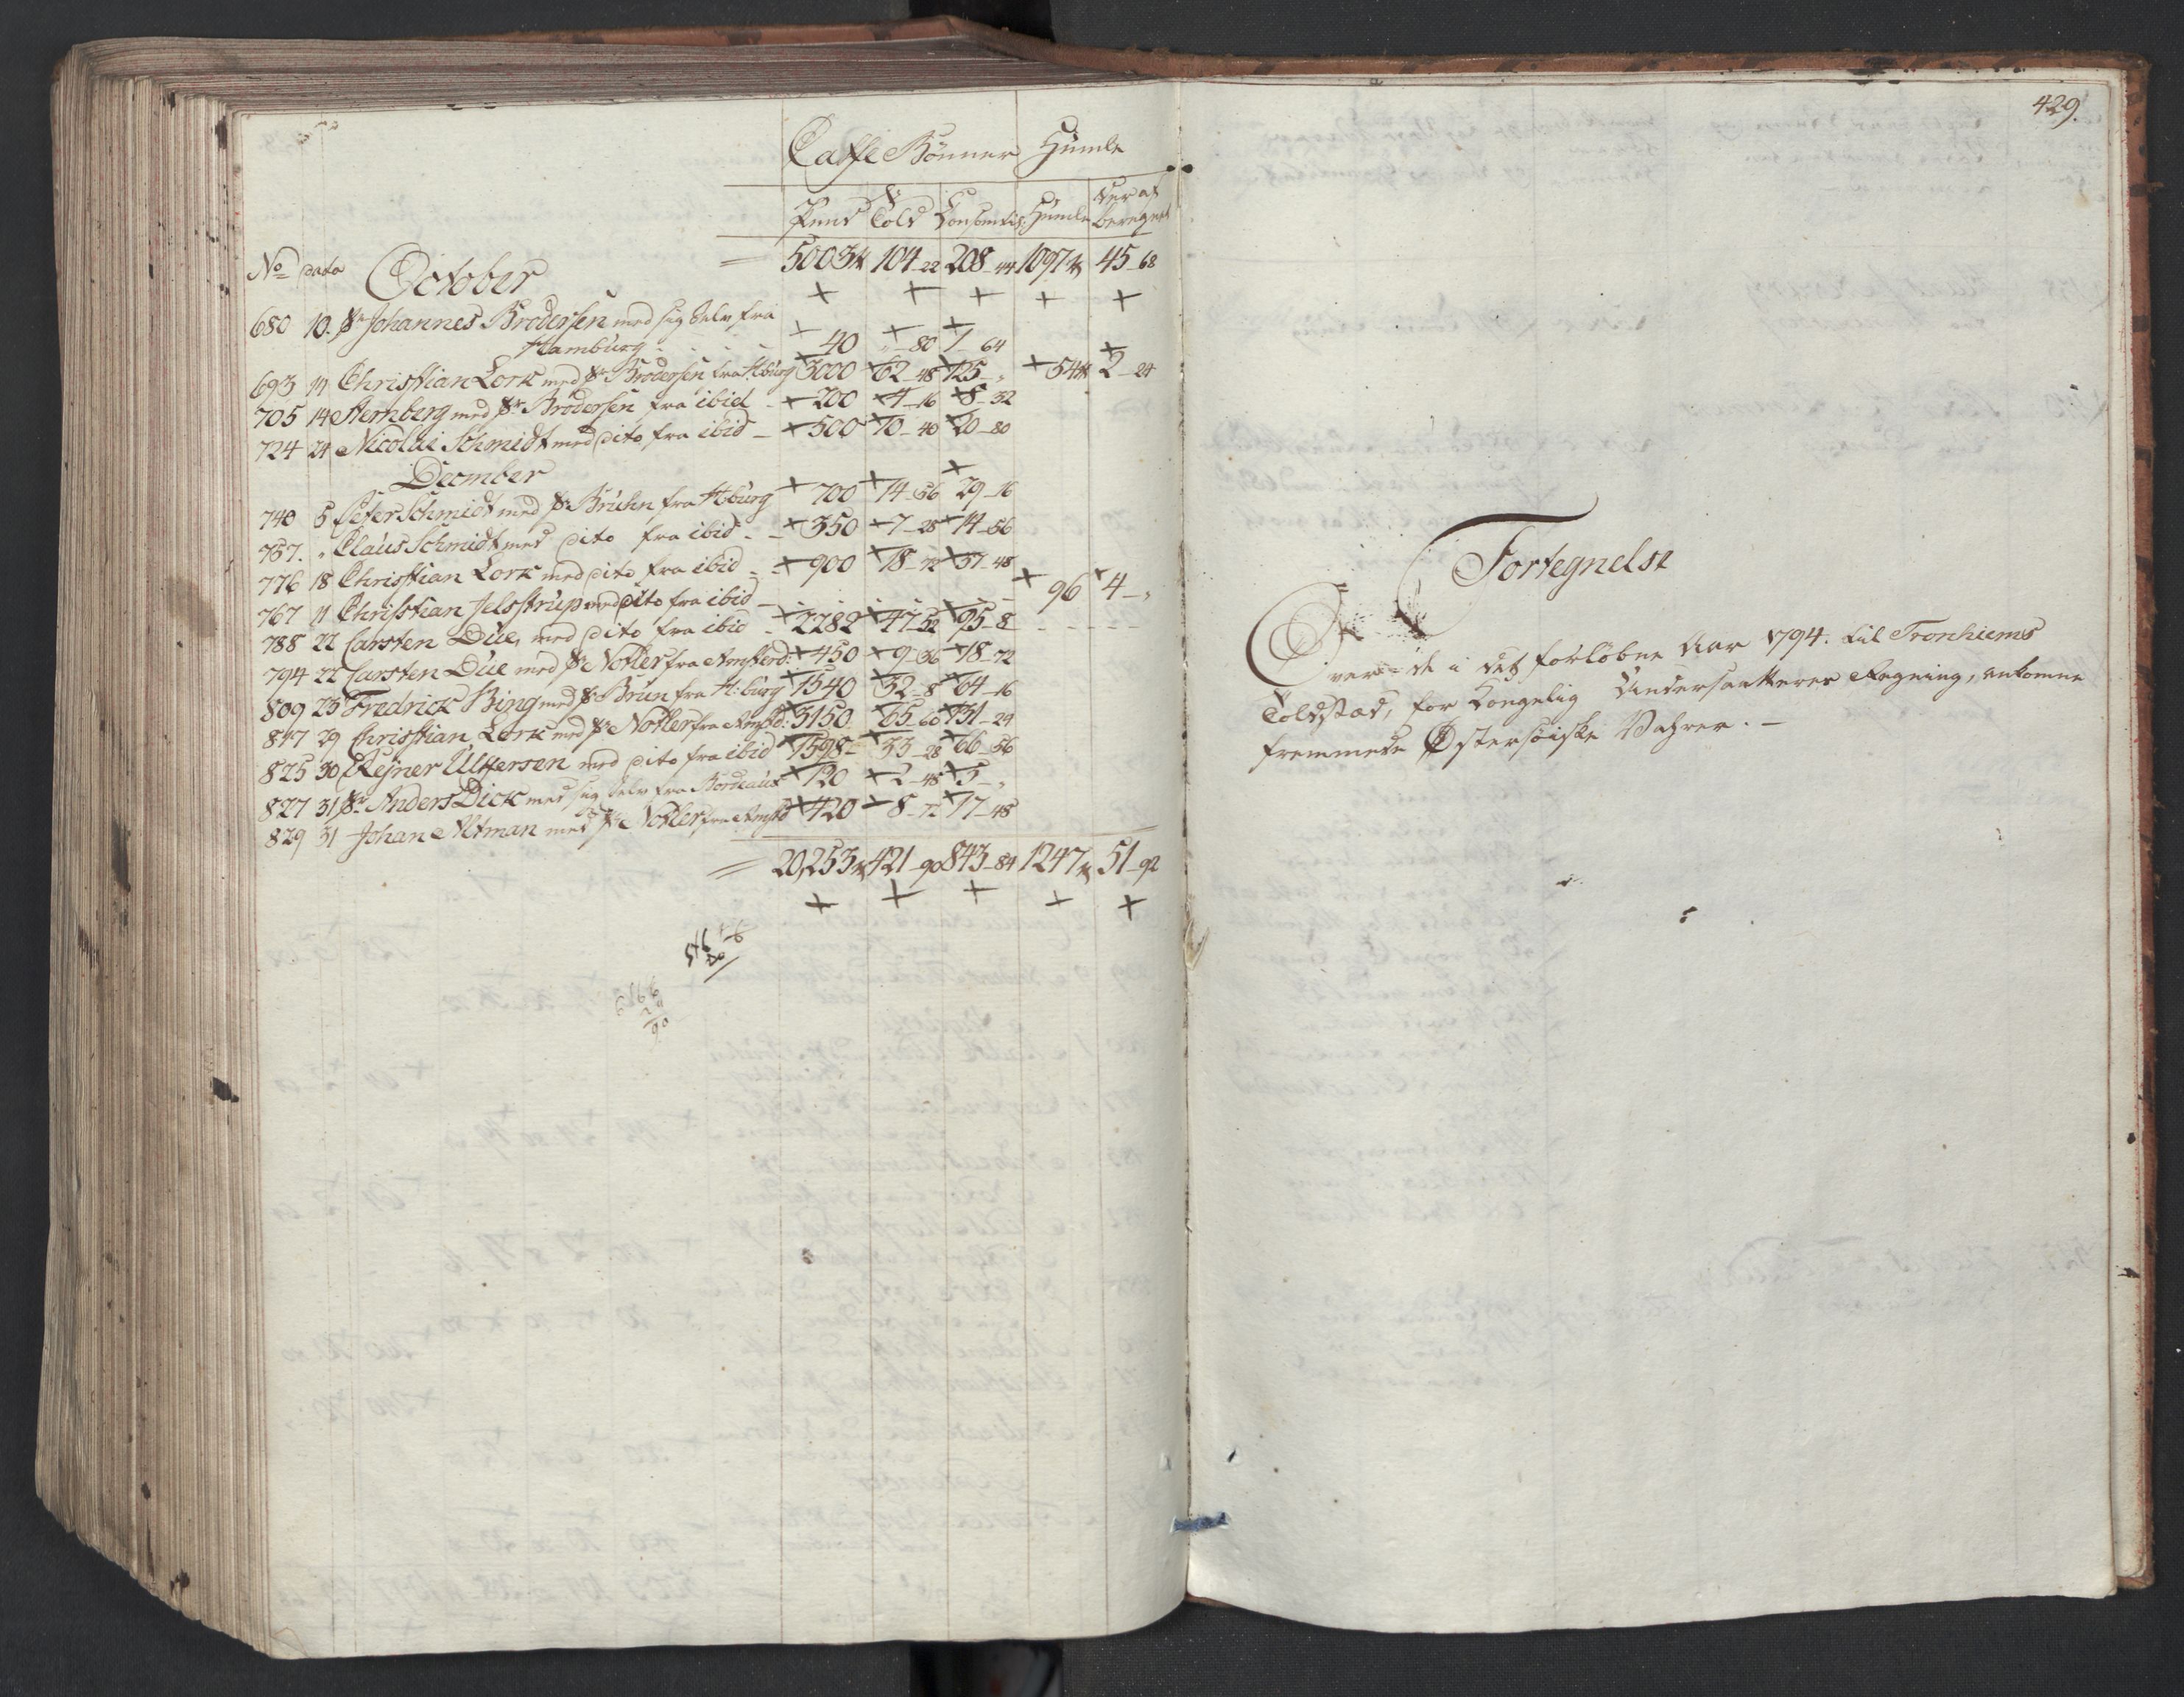 Caffe Bønner Humle
Pund Told Consumtis: Humle Der af beregnet
No dato October = 5003 104-22 208-44 1097 45-68
680 10. Sr Johannes Brodersen med sig selv fra
Hamburg 40 "-80 1-64
693 11 Christian Lork med Sr Brodersen fra H:burg 3000 62-48 125-" 54 2-24
705 14 Sternberg med Sr Brodersen fra ibid - 200 4-16 8-32
724 24 Nicolai Schmidt med dito fra ibid - 500 10-40 20-80
December
740 5 Peter Schmidt med Sr Bruhn fra H:burg 700 14-56 29-16
757. " Claus Schmidt med dito fra ibid - 350 7-28 14-56
776 18 Christian Lork med dito fra ibid - 900 18-72 37-48
767 11 Christian Jelstrup med dito fra ibid - 96 4-"
788 22 Carsten Due, med dito fra ibid - 2282 47-52 95-8
794 22 Carsten Due med Sr Notler fra Amsterd: 450 9-36 18-72
809 23 Fredrick Bing med Sr Brun fra H:burg 1540 32-8 64-16
817 29 Christian Lork med Sr Notler fra Amstd: 3150 65-60 131-24
825 30 Rejner Ulffersen med dito fra ibid 1598- 33-28 66-56
827 31 Sr Anders Dick med sig selv fra Bordeaux 120 2-48 5-"
829 31 Johan Altman med Sr Notler fra Amstd 420 8-72 17-48
= 20,253 421-90 843-84 1247 51-92
429.
Fortegnelse
Over de i det forløbne Aar 1794. til Tronhiems
Toldstæd, for Kongelig Undersaatteres Regning, ankomne
fremmede Østersøiske Vahrer. -